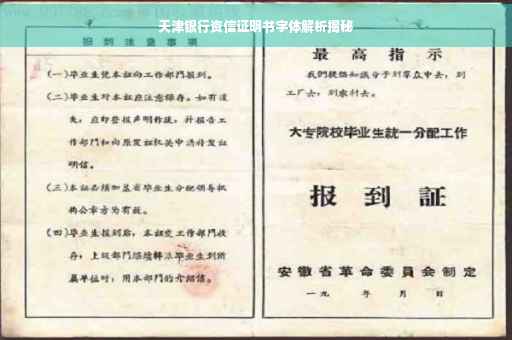 天津银行资信证明书字体解析揭秘
报到注意事项
(一)毕业生凭本证向工作部门报到。
(二)毕业生对本证应注意保存。如有遗
失,应即登报声明作废,并报告工
作部门和向原发证机关申请补发证
明信。
(三)本证必须加盖省毕业生分配领导机
构公章方为有效。
(四)毕业生报到后,本证交工作部门收
存;上级部门继续转派毕业生到所
属单位时,用本部门的介绍信。
最高指示
我们提倡知识分子到群众中去,到
工厂去,到农村去。
大专院校毕业生统一分配工作
报到証
安徽省革命委員会制定
一九 年 月 日